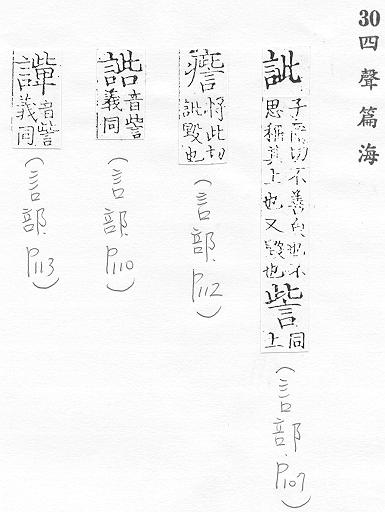 30 四聲篇海
訿 子爾切不善㒵也不思稱其上也又毀也 訾 同上
(言部 P107)
將此切訿毀也
(言部 P112)
音訾義同
(言部 P110)
音訾義同
(言部 P113)